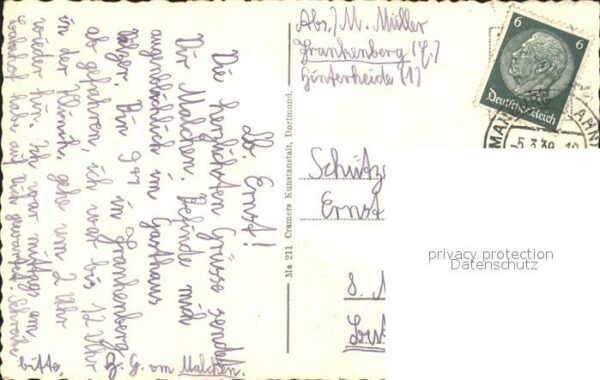 Abs./M. Müller
Frankenberg (E.)
Hinterheide (1)
6 6
Deutsches Reich
-5.3.39.-19
Lb. Ernst!
Die herzlichsten Grüsse sendet
Dir Malchen. Befinde mich
augenblicklich im Gasthaus
Bin 9 in Frankenberg
abgefahren, ich war bis 12 Uhr
in der Klinik, gehe um 2 Uhr
wieder hin. Ich war mittags am
habe auf Dich gewartet. Schreibe
bitte. H. G. von Malchen.
Ma 211 Cramers Kunstanstalt, Dortmund.
Schütz
Ernst
8.
privacy protection
Datenschutz